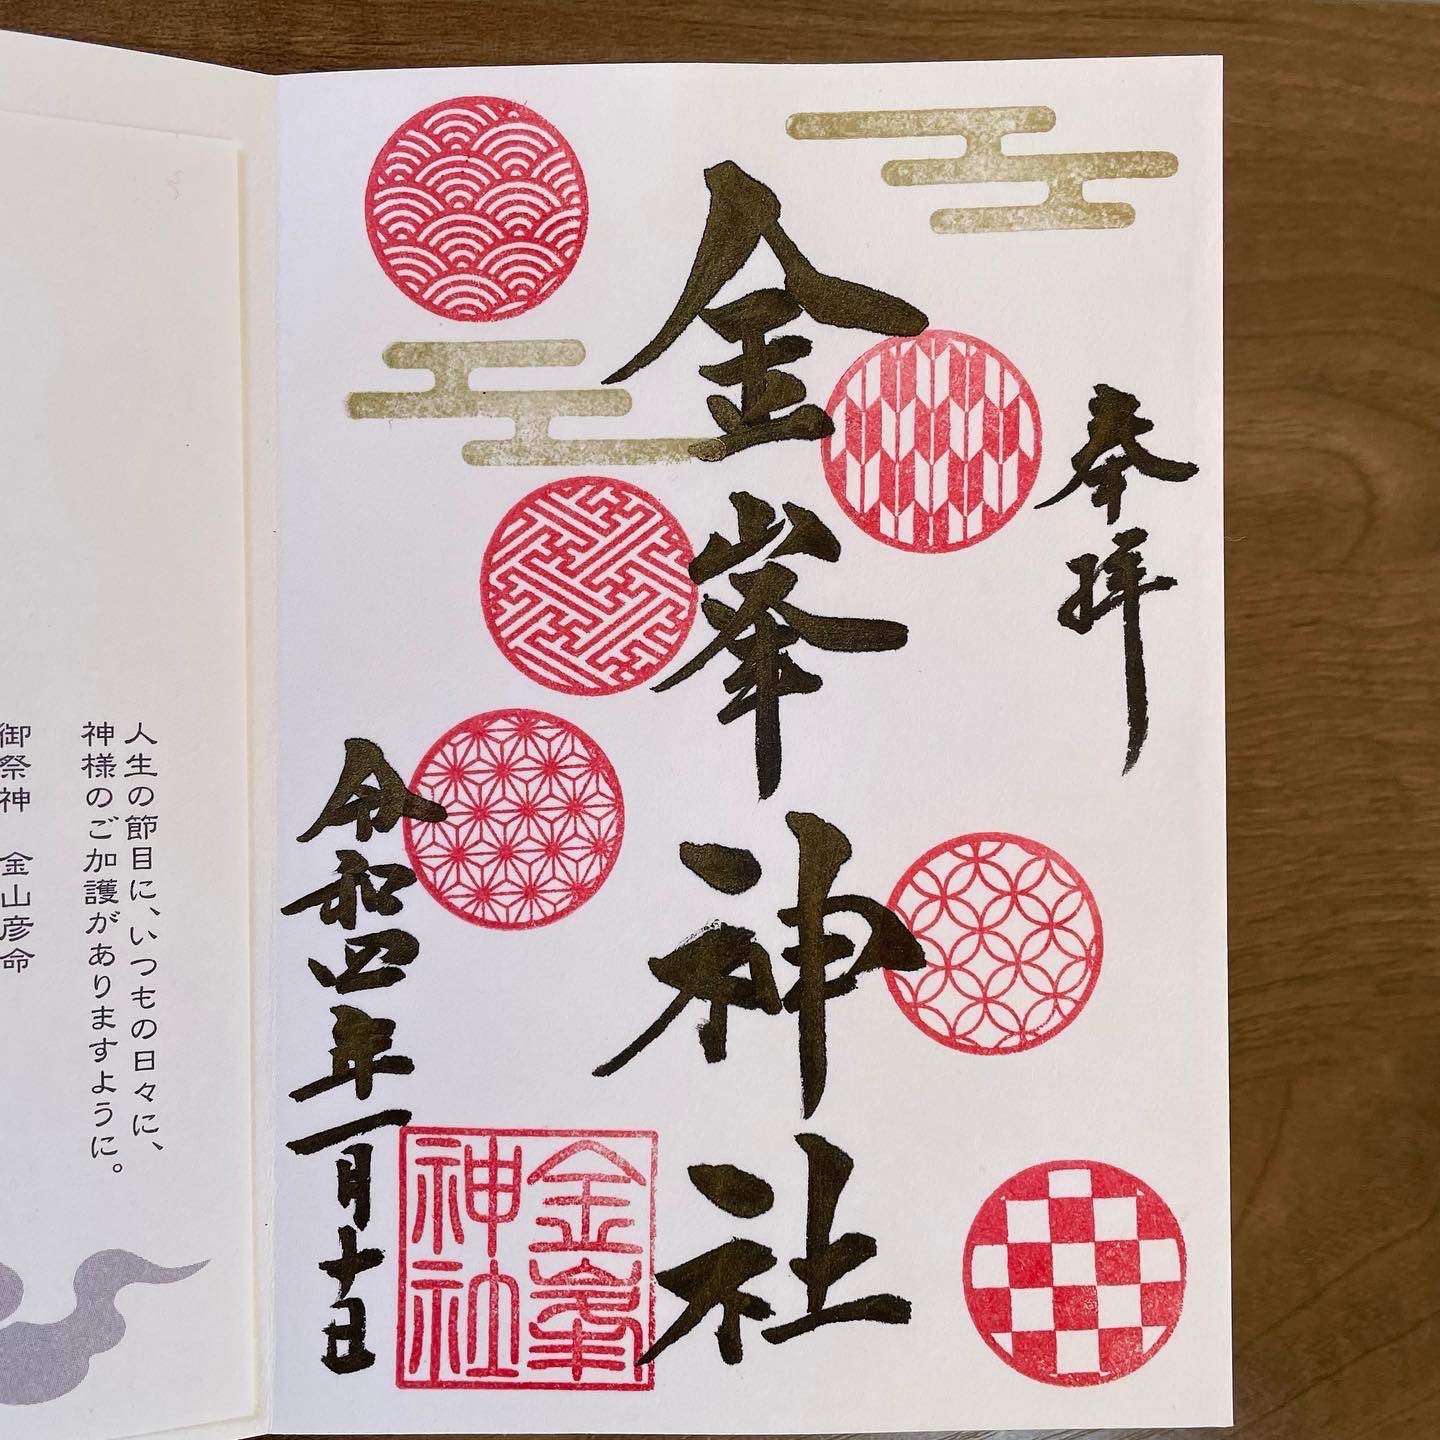 奉拝
金峯神社
令和四年一月十日
金峯
神社
人生の節目に、いつもの日々に、
神様のご加護がありますように。
御祭神　金山彦命